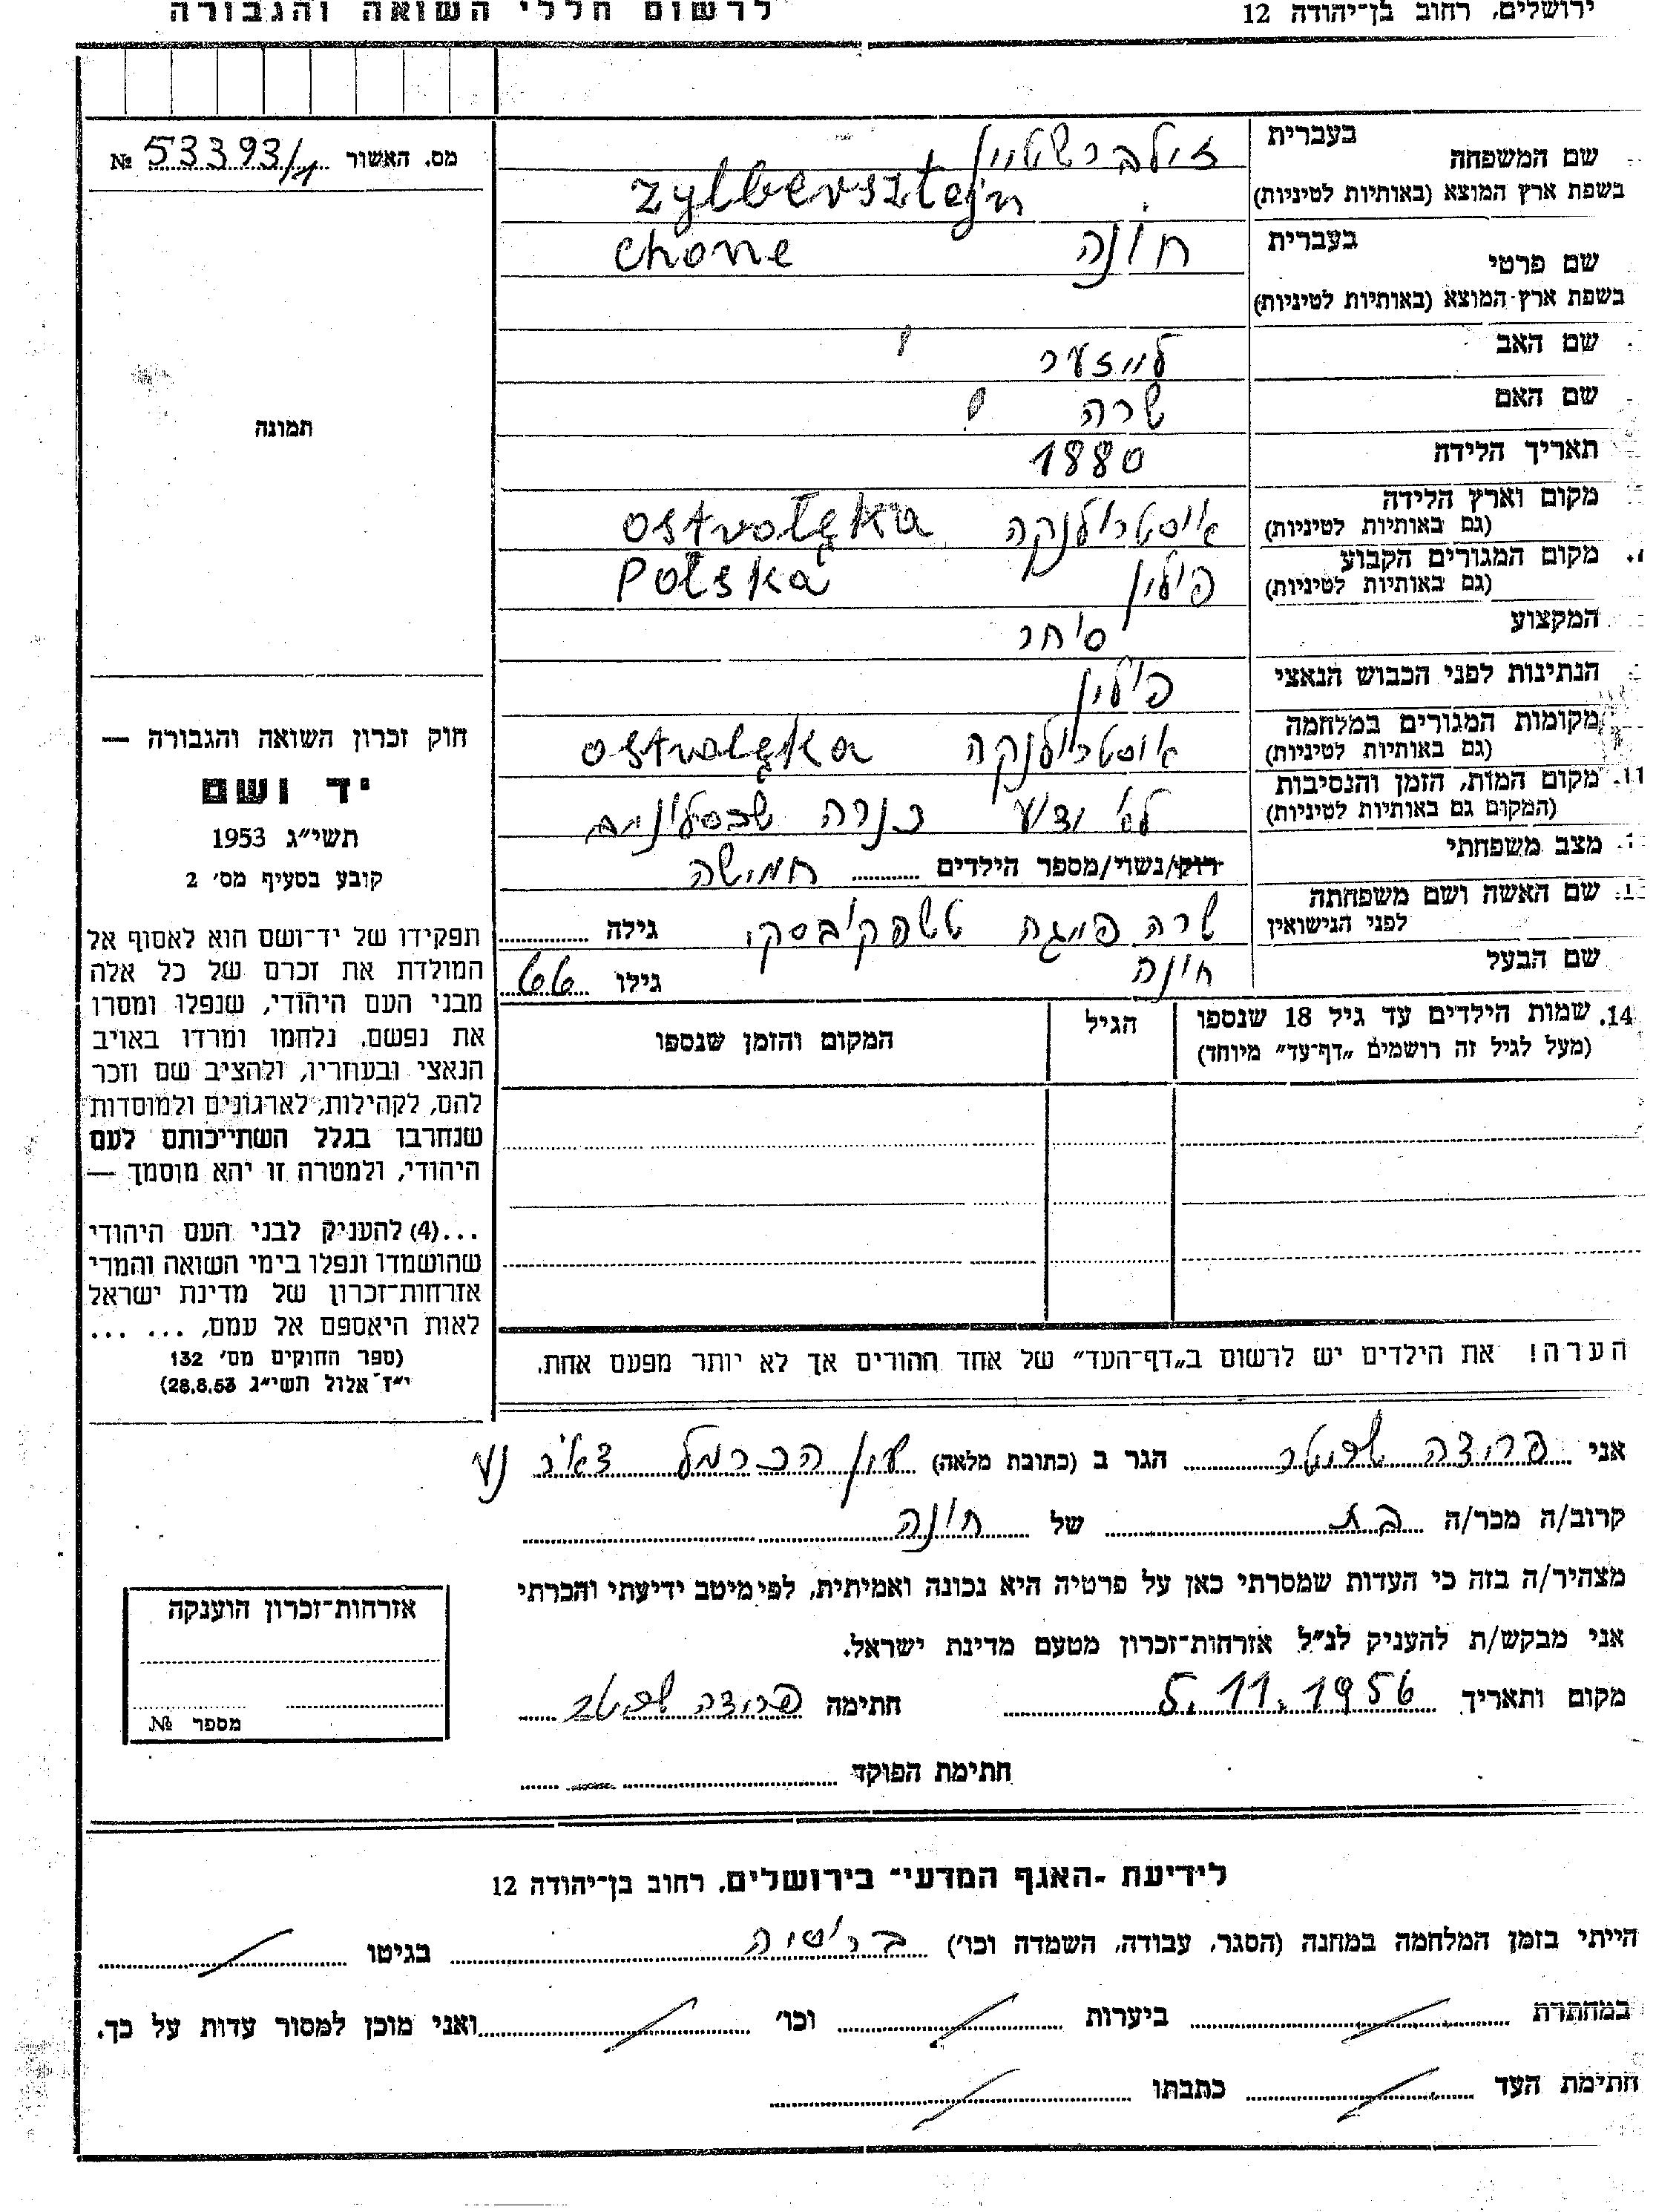 ירושלים, רחוב בן־יהודה 12
לרשום חללי השואה והגבורה
בעברית
שם המשפחה
בשפת ארץ המוצא (באותיות לטיניות)
זילברשטיין
zylbersztejn
בעברית
שם פרטי
בשפת ארץ־המוצא (באותיות לטיניות)
חונה chone
שם האב לייזער
שם האם שרה
תאריך הלידה 1880
מקום וארץ הלידה
(גם באותיות לטיניות)
אוסטרולנקה ostrołęka
מקום המגורים הקבוע
(גם באותיות לטיניות)
פולין Polska
המקצוע סוחר
הנתינות לפני הכבוש הנאצי פולין
מקומות המגורים במלחמה
(גם באותיות לטיניות)
אוסטרולנקה ostrołęka
11. מקום המות, הזמן והנסיבות
(המקום גם באותיות לטיניות)
לא ידוע כנרה
מצב משפחתי רוק/נשוי/מספר הילדים חמישה
שם האשה ושם משפחתה
לפני הנישואין
שרה פייגה גילה
שם הבעל חונה גילו 66
14. שמות הילדים עד גיל 18 שנספו
(מעל לגיל זה רושמים „דף־עד” מיוחד)
הגיל
המקום והזמן שנספו
הערה! את הילדים יש לרשום ב„דף־העד” של אחד ההורים אך לא יותר מפעם אחת.
מס. האשור 53393/1 №
תמונה
חוק זכרון השואה והגבורה —
יד ושם
תשי״ג 1953
קובע בסעיף מס׳ 2
תפקידו של יד־ושם הוא לאסוף אל
המולדת את זכרם של כל אלה
מבני העם היהודי, שנפלו ומסרו
את נפשם, נלחמו ומרדו באויב
הנאצי ובעוזריו, ולהציב שם וזכר
להם, לקהילות, לארגונים ולמוסדות
שנחרבו בגלל השתייכותם לעם
היהודי, ולמטרה זו יהא מוסמך —
...(4) להעניק לבני העם היהודי
שהושמדו ונפלו בימי השואה והמרי
אזרחות־זכרון של מדינת ישראל
לאות היאספם אל עמם, ... ...
(ספר החוקים מס׳ 132
י״ז אלול תשי״ג 28.8.53)
אני פרידה הגר ב (כתובת מלאה) עין הכרמל דאר נע
קרוב/ה מכר/ה בת של חונה
מצהיר/ה בזה כי העדות שמסרתי כאן על פרטיה היא נכונה ואמיתית, לפי מיטב ידיעתי והכרתי
אני מבקש/ת להעניק לנ״ל אזרחות־זכרון מטעם מדינת ישראל.
מקום ותאריך 5.11.1956 חתימה פרידה
חתימת הפוקד
אזרחות־זכרון הוענקה
מספר №
לידיעת ״האגף המדעי״ בירושלים, רחוב בן־יהודה 12
הייתי בזמן המלחמה במחנה (הסגר, עבודה, השמדה וכו׳) ברוסיה בגיטו
במחתרת ביערות וכו׳ ואני מוכן למסור עדות על כך.
חתימת העד כתבתו